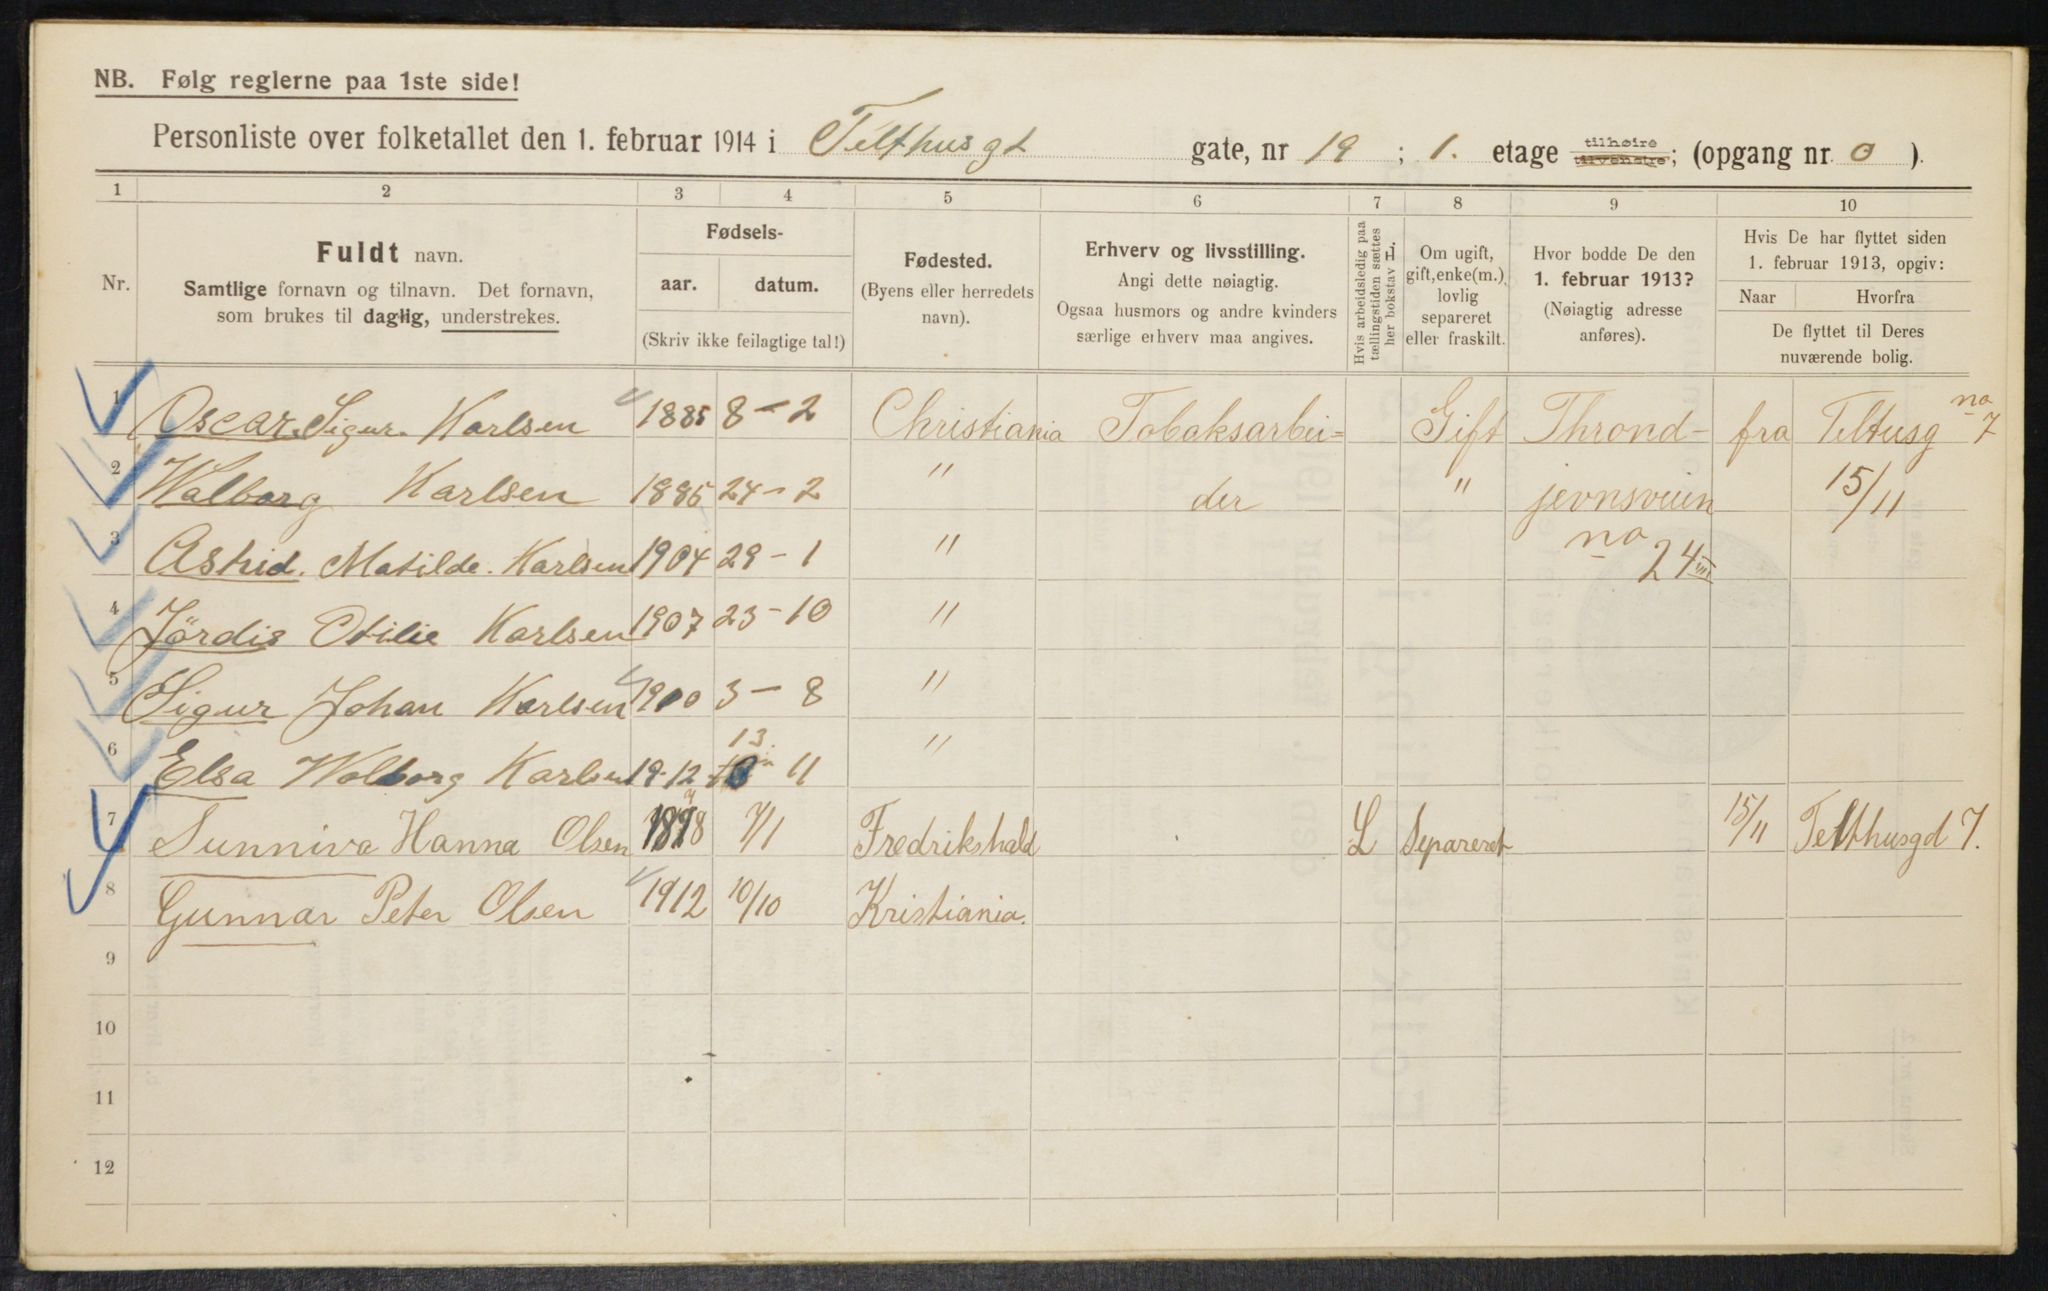 NB. Følg reglerne paa 1ste side!
Personliste over folketallet den 1. februar 1914 i Telthusgt gate, nr 19 ; 1. etage tilhøire tilvenstre; (opgang nr. 0 ).
1 2 3 4 5 6 7 8 9 10
Nr.
Fuldt navn.
Samtlige fornavn og tilnavn. Det fornavn,
som brukes til daglig, understrekes.
Fødsels-
aar. datum.
(Skriv ikke feilagtige tal!)
Fødested.
(Byens eller herredets
navn).
Erhverv og livsstilling.
Angi dette nøiagtig.
Ogsaa husmors og andre kvinders
særlige erhverv maa angives.
Hvis arbeidsledig paa
tællingstiden sættes
her bokstav L.
Om ugift,
gift, enke(m.),
lovlig
separeret
eller fraskilt.
Hvor bodde De den
1. februar 1913?
(Nøiagtig adresse
anføres).
Hvis De har flyttet siden
1. februar 1913, opgiv:
Naar Hvorfra
De flyttet til Deres
nuværende bolig.
1 Oscar. Sigur. Karlsen 1885 8 - 2 Christiania Tobaksarbei= Gift Thrond- fra Teltusg no 7
2 Walborg Karlsen 1885 24 - 2 " der " jevnsveien 15/11
3 Astrid. Matilde. Karlsen 1904 29 - 1 " no 24 III
4 Jördis Otilie Karlsen 1907 23 - 10 "
5 Sigur Johan Karlsen 1910 3 - 8 "
6 Elsa Walborg Karlsen 19-12 13. 11 "
7 Sunniva Hanna Olsen 7/1 Fredrikshald L Separeret 15/11 Telthusgd 7.
8 Gunnar Peter Olsen 1912 10/10 Kristiania.
9
10
11
12